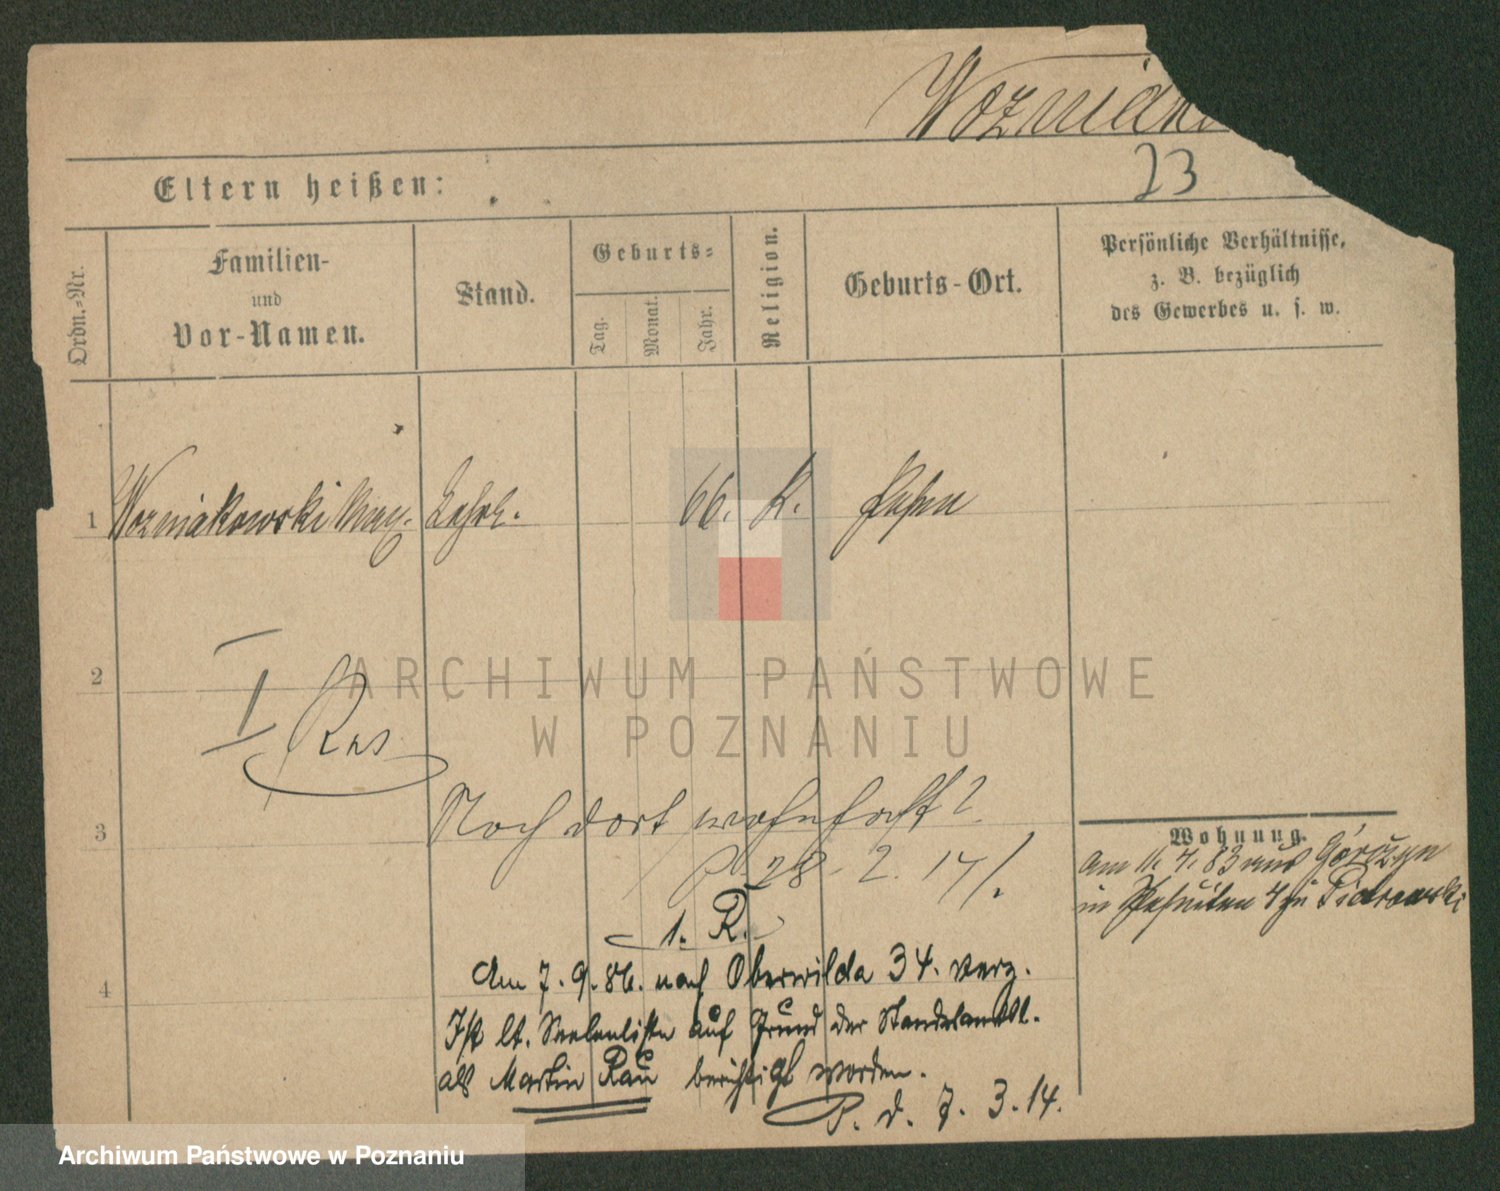 Wozniak
23
Eltern heißen:
Ordn.-Nr.
Familien-
und
Vor-Namen.
Stand.
Geburts-
Tag.
Monat.
Jahr.
Religion.
Geburts-Ort.
Persönliche Verhältnisse,
z. B. bezüglich
des Gewerbes u. s. w.
1 Wozniakowski Max. Lehrl. 66. K. Posen
2
I
3
Noch dort wohnhaft?
28. 2. 14
Wohnung.
Am 11. 4. 83 aus Górczyn
in Jesuiten 4 zu Piotrowski
1. R.
4
Am 7. 9. 86. nach Oberwilda 34. verz.
Ist lt. Seelenliste auf Grund der
als Martin Rau berichtigt worden.
P. d. 7. 3. 14.
ARCHIWUM PAŃSTWOWE
W POZNANIU
Archiwum Państwowe w Poznaniu